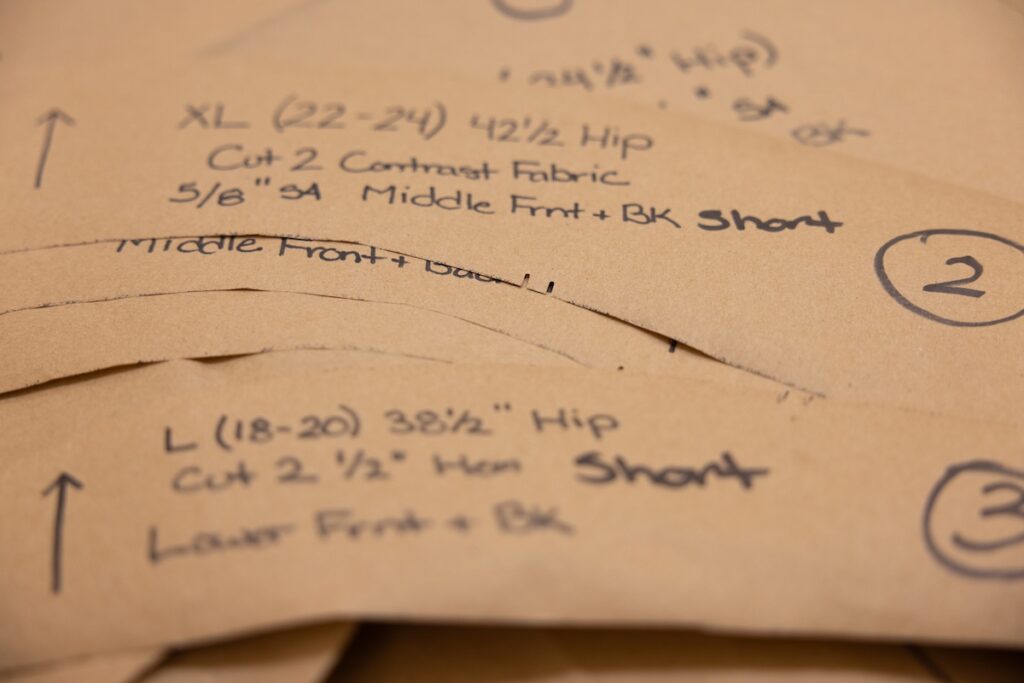 Hip)
SA
XL (22-24) 42 1/2 Hip
Cut 2 Contrast Fabric
5/8" SA Middle Frnt + BK Short
2
Middle Front +
L (18-20) 38 1/2" Hip
Cut 2 1/2" Hem Short
Lower Frnt + BK
3